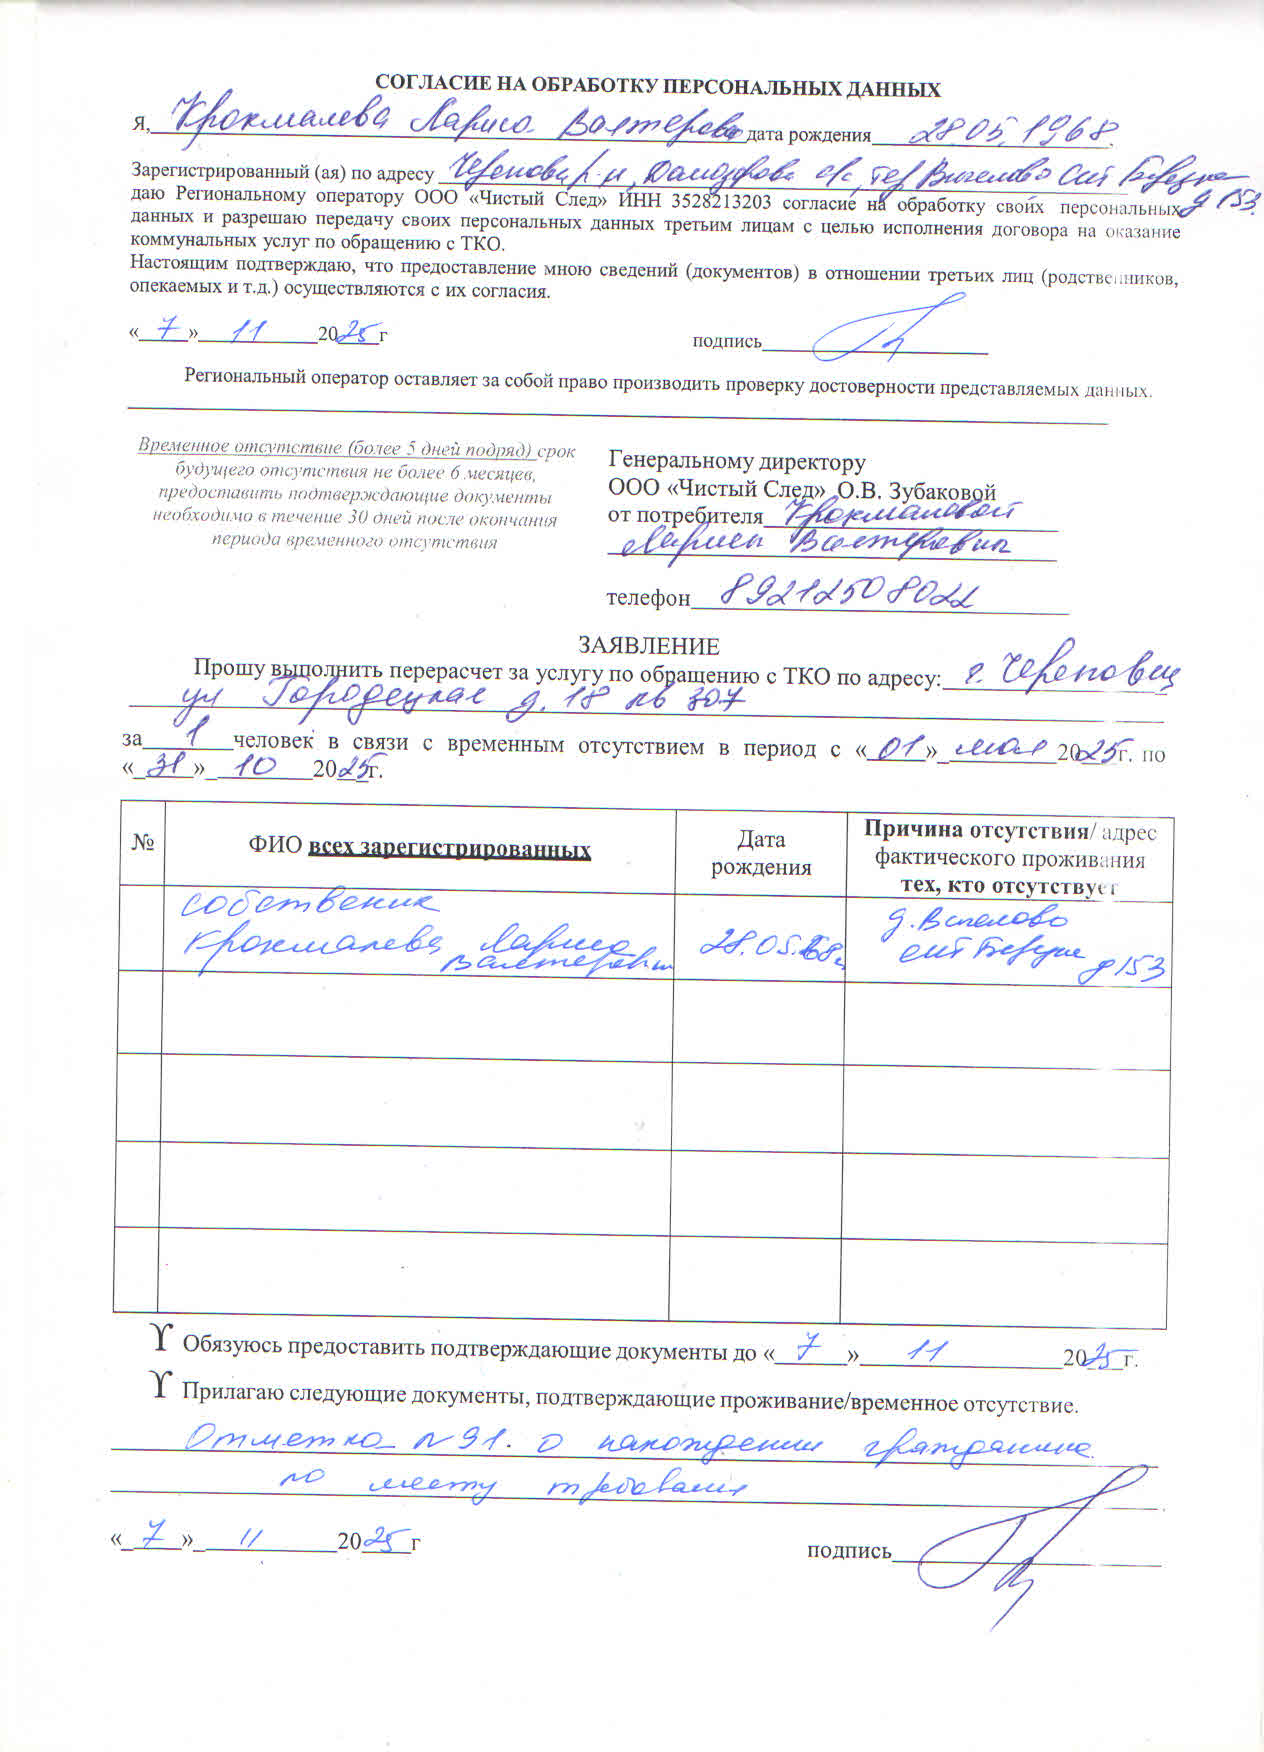 СОГЛАСИЕ НА ОБРАБОТКУ ПЕРСОНАЛЬНЫХ ДАННЫХ
Я, Крокмалева Лариса Валтеровна дата рождения 28.05.1968.
Зарегистрированный (ая) по адресу Череповец р-н, д 153
даю Региональному оператору ООО «Чистый След» ИНН 3528213203 согласие на обработку своих персональных
данных и разрешаю передачу своих персональных данных третьим лицам с целью исполнения договора на оказание
коммунальных услуг по обращению с ТКО.
Настоящим подтверждаю, что предоставление мною сведений (документов) в отношении третьих лиц (родственников,
опекаемых и т.д.) осуществляются с их согласия.
«7» 11 2025 г подпись
Региональный оператор оставляет за собой право производить проверку достоверности представляемых данных.
Временное отсутствие (более 5 дней подряд) срок
будущего отсутствия не более 6 месяцев,
предоставить подтверждающие документы
необходимо в течение 30 дней после окончания
периода временного отсутствия
Генеральному директору
ООО «Чистый След» О.В. Зубаковой
от потребителя Крокмалевой
Ларисы Валтеровны
телефон 89212508022
ЗАЯВЛЕНИЕ
Прошу выполнить перерасчет за услугу по обращению с ТКО по адресу: г. Череповец
ул Городецкая д. 18 кв 307
за 1 человек в связи с временным отсутствием в период с «01» мая 2025 г. по
«31» 10 2025 г.
№ ФИО всех зарегистрированных Дата рождения Причина отсутствия/ адрес фактического проживания тех, кто отсутствует
собственик
Крокмалева Лариса Валтеровн 28.05.68г д 153
ϒ Обязуюсь предоставить подтверждающие документы до «7» 11 2025 г.
ϒ Прилагаю следующие документы, подтверждающие проживание/временное отсутствие.
Отметка №91. о нахождении гражданина
по месту требования
«7» 11 2025 г подпись